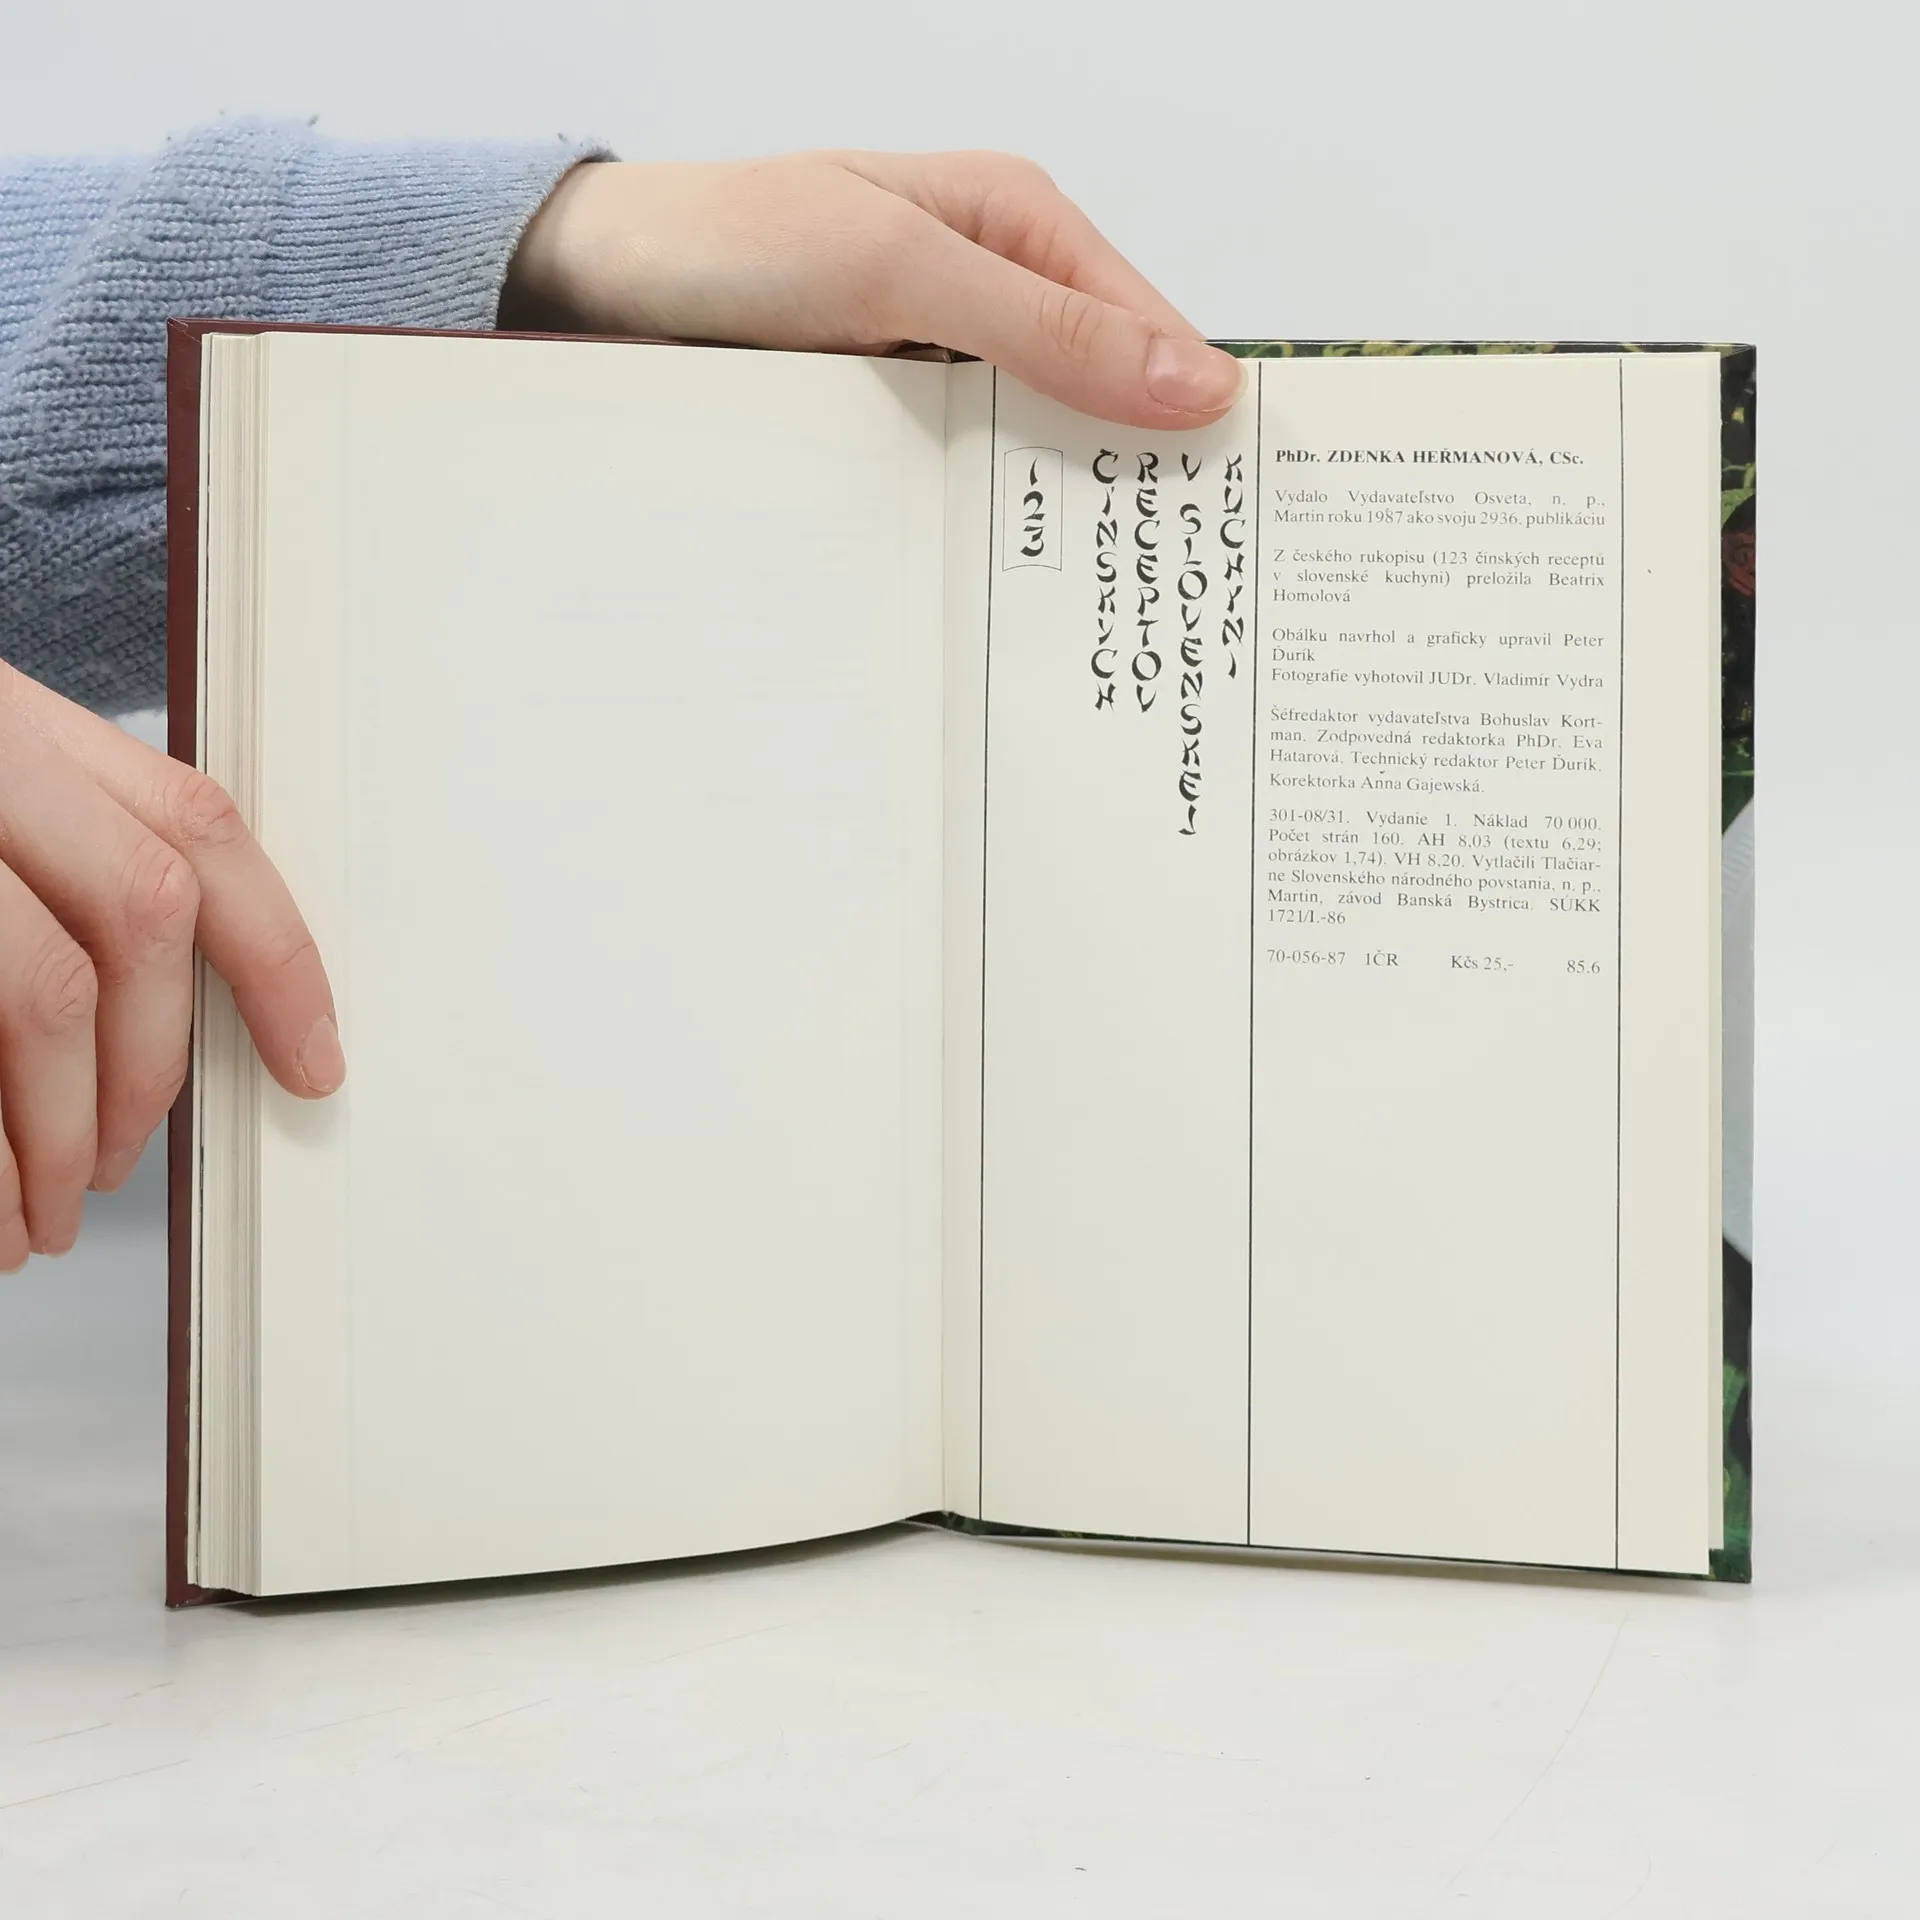 123
ČÍNSKYCH
RECEPTOV
V SLOVENSKEJ
KUCHYNI
PhDr. ZDENKA HEŘMANOVÁ, CSc.
Vydalo Vydavateľstvo Osveta, n. p.,
Martin roku 1987 ako svoju 2936. publikáciu
Z českého rukopisu (123 čínských receptů
v slovenské kuchyni) preložila Beatrix
Homolová
Obálku navrhol a graficky upravil Peter
Ďurík
Fotografie vyhotovil JUDr. Vladimír Vydra
Šéfredaktor vydavateľstva Bohuslav Kort-
man. Zodpovedná redaktorka PhDr. Eva
Hatarová. Technický redaktor Peter Ďurík.
Korektorka Anna Gajewská.
301-08/31. Vydanie 1. Náklad 70 000.
Počet strán 160. AH 8,03 (textu 6,29;
obrázkov 1,74). VH 8,20. Vytlačili Tlačiar-
ne Slovenského národného povstania, n. p.,
Martin, závod Banská Bystrica. SÚKK
1721/I.-86
70-056-87 1ČR Kčs 25,- 85.6